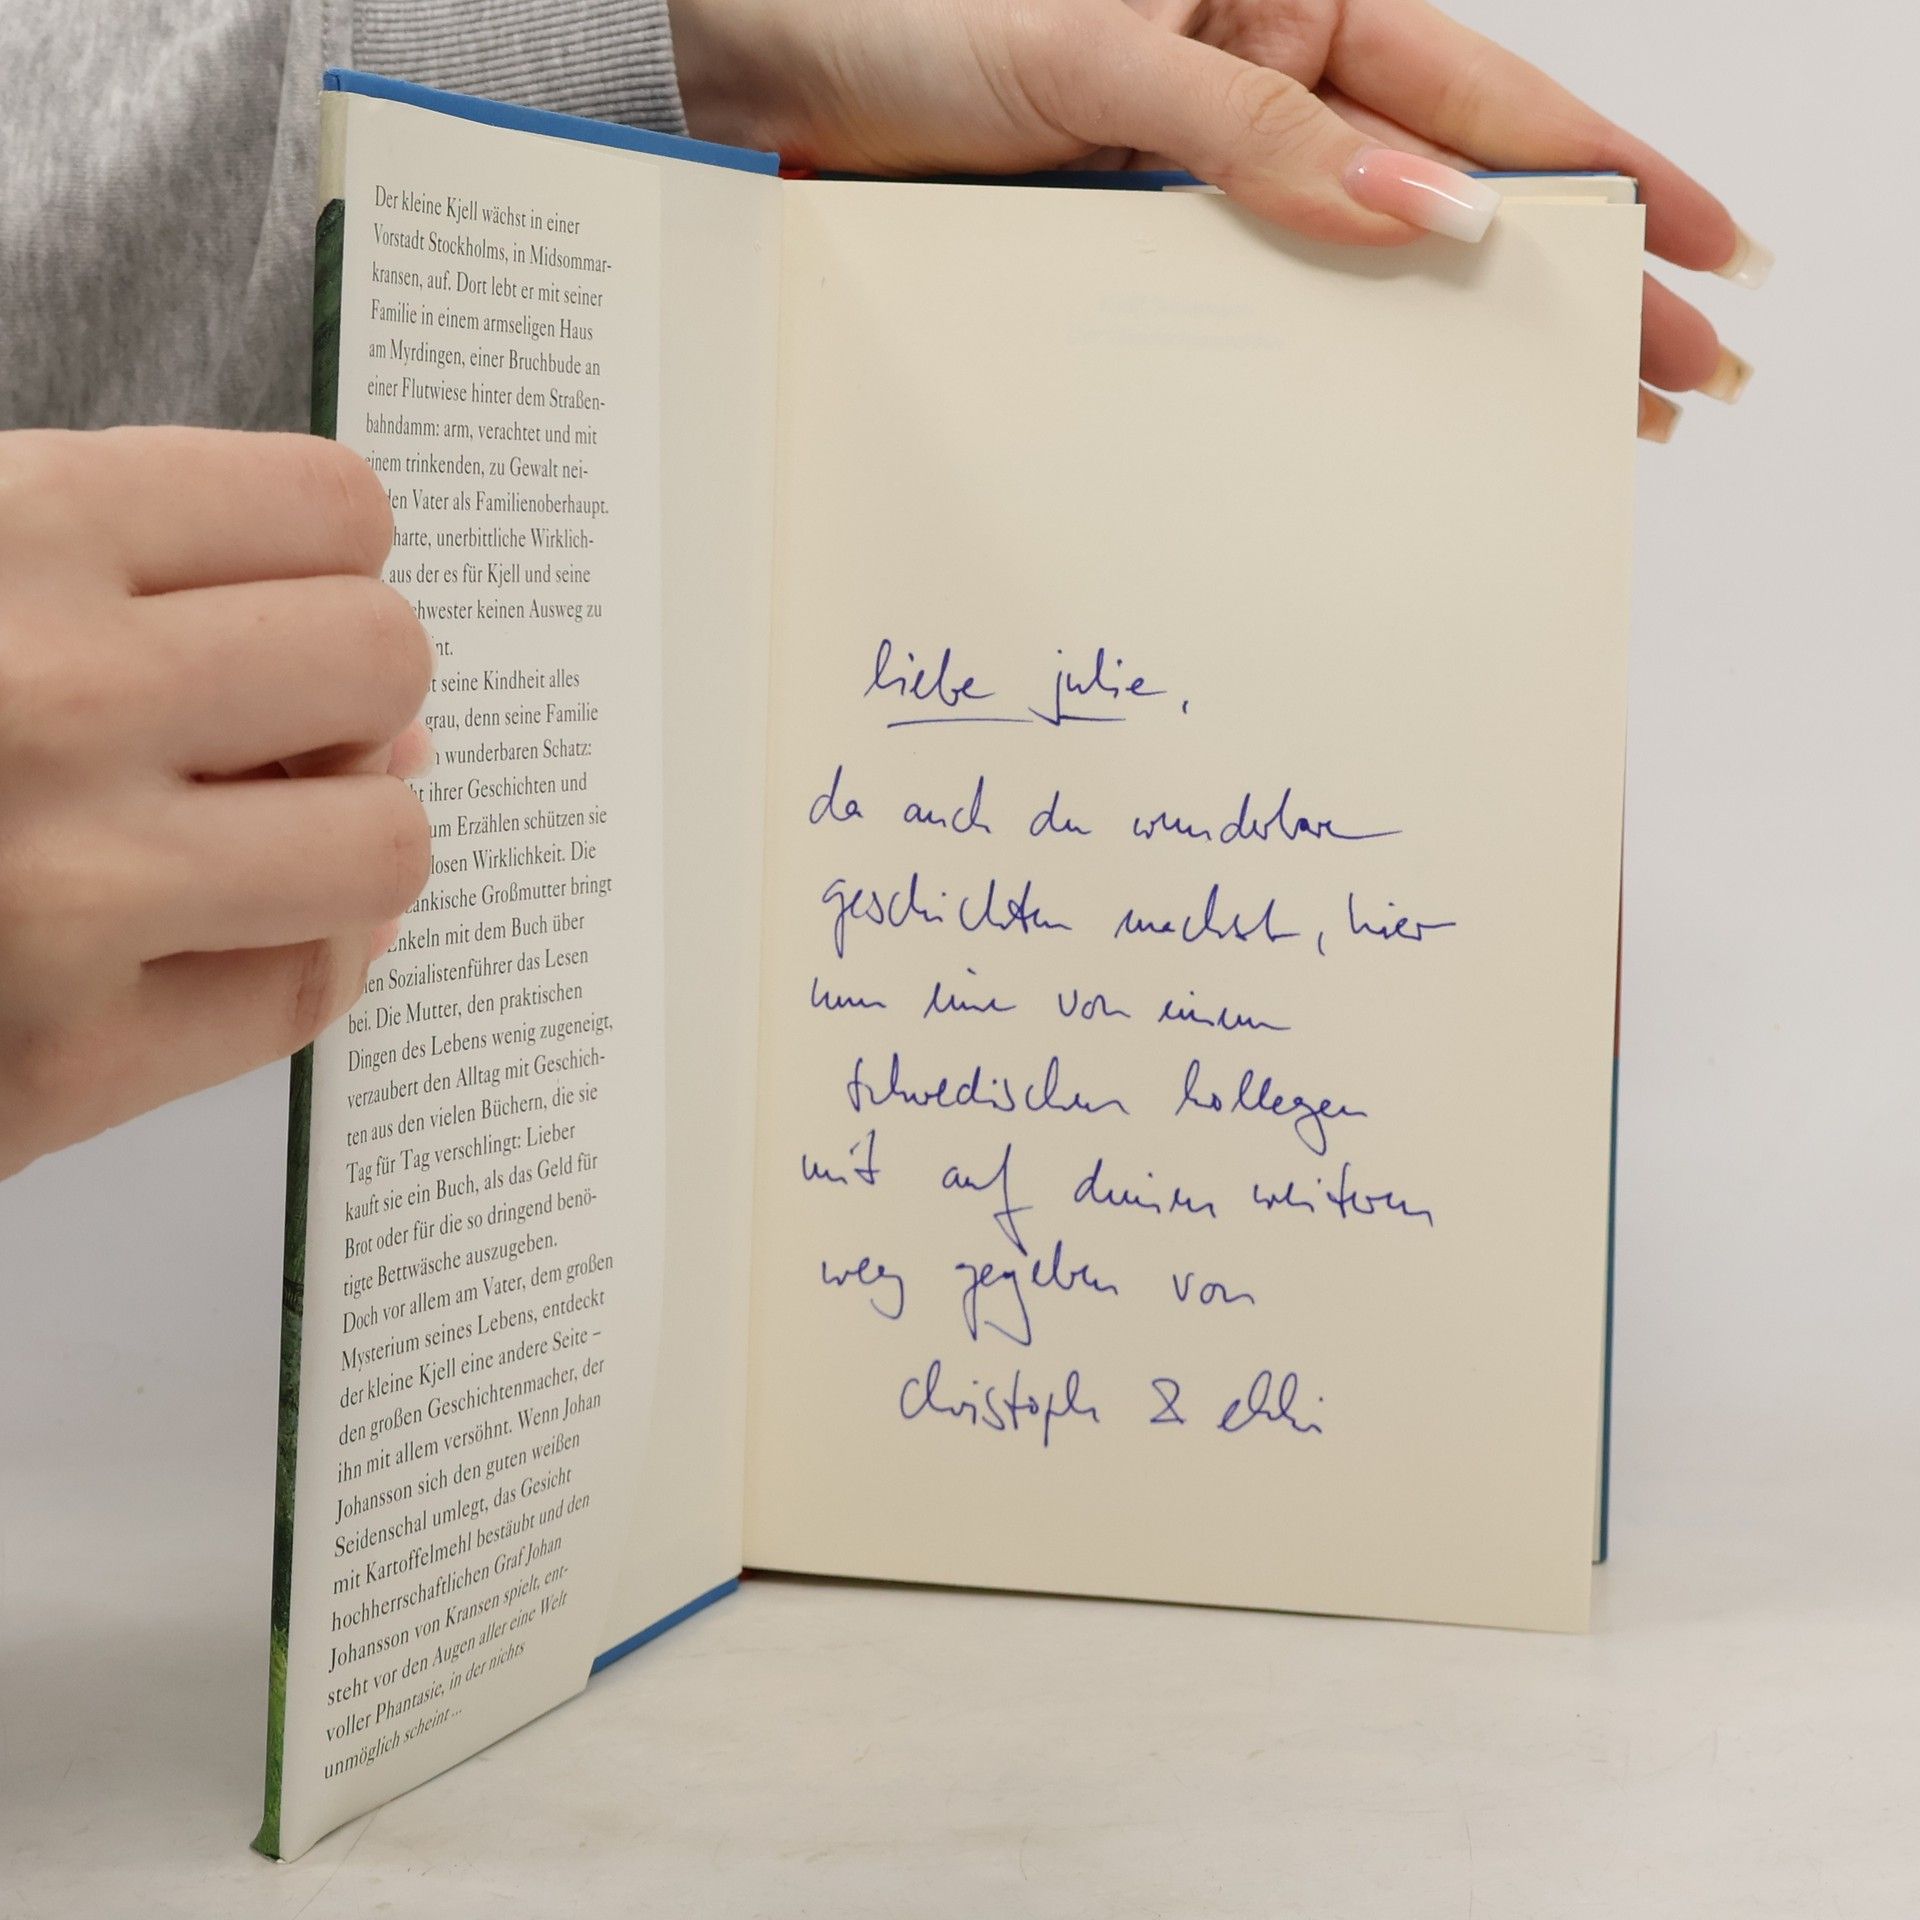 Der kleine Kjell wächst in einer
Vorstadt Stockholms, in Midsommar-
kransen, auf. Dort lebt er mit seiner
Familie in einem armseligen Haus
am Myrdingen, einer Bruchbude an
einer Flutwiese hinter dem Straßen-
bahndamm: arm, verachtet und mit
einem trinkenden, zu Gewalt nei-
den Vater als Familienoberhaupt.
harte, unerbittliche Wirklich-
aus der es für Kjell und seine
chwester keinen Ausweg zu
nt.
t seine Kindheit alles
grau, denn seine Familie
n wunderbaren Schatz:
ht ihrer Geschichten und
um Erzählen schützen sie
losen Wirklichkeit. Die
zänkische Großmutter bringt
Enkeln mit dem Buch über
en Sozialistenführer das Lesen
bei. Die Mutter, den praktischen
Dingen des Lebens wenig zugeneigt,
verzaubert den Alltag mit Geschich-
ten aus den vielen Büchern, die sie
Tag für Tag verschlingt: Lieber
kauft sie ein Buch, als das Geld für
Brot oder für die so dringend benö-
tigte Bettwäsche auszugeben.
Doch vor allem am Vater, dem großen
Mysterium seines Lebens, entdeckt
der kleine Kjell eine andere Seite –
den großen Geschichtenmacher, der
ihn mit allem versöhnt. Wenn Johan
Johansson sich den guten weißen
Seidenschal umlegt, das Gesicht
mit Kartoffelmehl bestäubt und den
hochherrschaftlichen Graf Johan
Johansson von Kransen spielt, ent-
steht vor den Augen aller eine Welt
voller Phantasie, in der nichts
unmöglich scheint ...
liebe julie,
da auch du wunderbare
geschichten machst, hier
nun eine von einem
schwedischen kollegen
mit auf deinen weiteren
weg gegeben von
christoph &